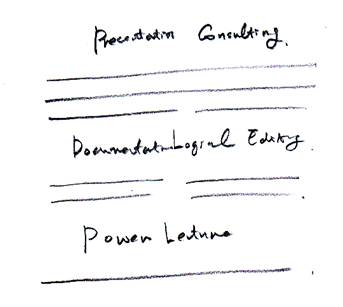 Presentation Consulting.
Documentation Logical Editing.
Power Lecture